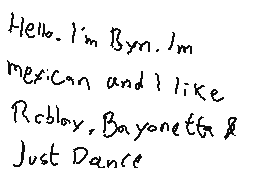 Hello. I'm Byn. Im
mexican and I like
Roblox, Bayonetta &
Just Dance